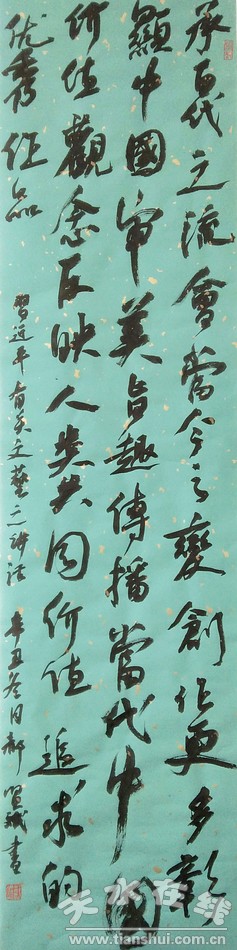 承百代之流會當今之變創作更多彰
顯中國审美旨趣傳播當代中國
价值觀念反映人类共同价值追求的
优秀作品
習近平有关文藝之讲话 辛丑冬月 書
天水在线
www.tianshui.com.cn